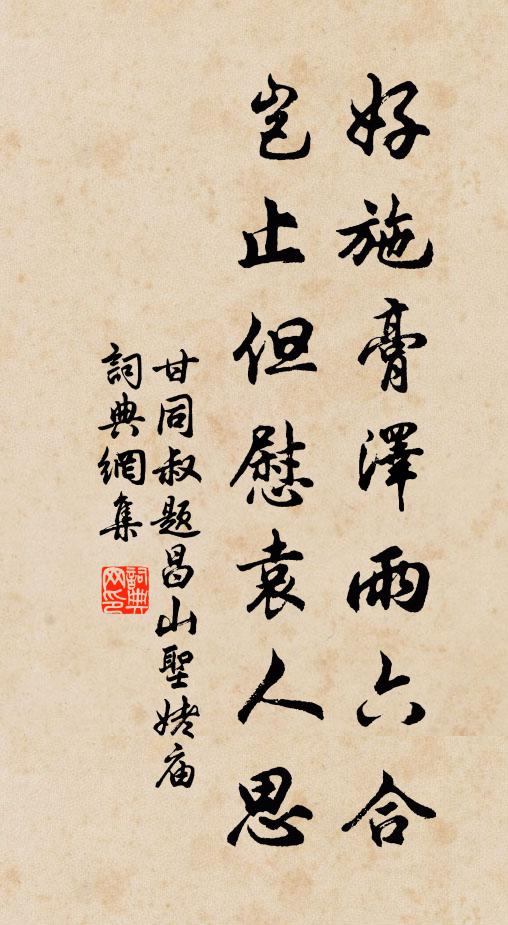 好施膏澤雨六合
豈止但慰袁人思
甘同叔題昌山聖姥庙
詞典網集
詞典网印